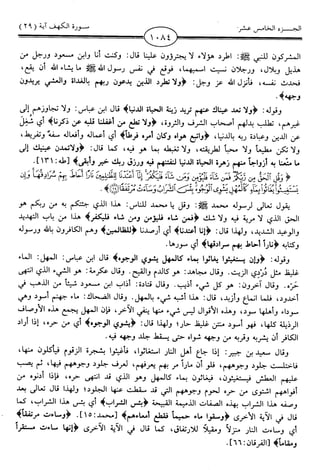 الجزء الخامس عشر
١٠٨٤
سورة الكهف آية (٢٩)
المشركون للنبي ﷺ: اطرد هؤلاء لا يجترؤون علينا قال: وكنت أنا وابن مسعود ورجل من
هذيل وبلال، ورجلان نسيت اسميهما، فوقع في نفس رسول الله ﷺ ما يشاء الله أن يقع،
فحدث نفسه، فأنزل الله عز وجل: ﴿ولا تطرد الذين يدعون ربهم بالغداة والعشي يريدون
وجهه﴾.
وقوله: ﴿ولا تعد عيناك عنهم تريد زينة الحياة الدنيا﴾ قال ابن عباس: ولا تجاوزهم إلى
غيرهم، تطلب بدلهم أصحاب الشرف والثروة، ﴿ولا تطع من أغفلنا قلبه عن ذكرنا﴾ أي شُغِل
عن الدين وعبادة ربه بالدنيا، ﴿واتبع هواه وكان أمره فرطاً﴾ أي أعماله وأفعاله سفه وتفريط،
ولا تكن مطيعاً ولا محباً لطريقته، ولا تغبطه بما هو فيه، كما قال: ﴿ولا تمدن عينيك إلى
ما متعنا به أزواجاً منهم زهرة الحياة الدنيا لنفتنهم فيه ورزق ربك خير وأبقى﴾ [طه: ١٣١].
﴿وَقُلِ الْحَقُّ مِن رَّبِّكُمْ فَمَن شَاءَ فَلْيُؤْمِن وَمَن شَاءَ فَلْيَكْفُرْ إِنَّا أَعْتَدْنَا لِلظَّالِمِينَ نَارًا أَحَاطَ بِهِمْ سُرَادِقُهَا وَإِن
يَسْتَغِيثُوا يُغَاثُوا بِمَاءٍ كَالْمُهْلِ يَشْوِي الْوُجُوهَ بِئْسَ الشَّرَابُ وَسَاءَتْ مُرْتَفَقًا﴾
يقول تعالى لرسوله محمد ﷺ: وقل يا محمد للناس: هذا الذي جئتكم به من ربكم هو
الحق الذي لا مرية فيه ولا شك ﴿فمن شاء فليؤمن ومن شاء فليكفر﴾ هذا من باب التهديد
والوعيد الشديد، ولهذا قال: ﴿إنا أعتدنا﴾ أي أرصدنا ﴿للظالمين﴾ وهم الكافرون بالله ورسوله
وكتابه ﴿ناراً أحاط بهم سرادقها﴾ أي سورها.
وقوله: ﴿وإن يستغيثوا يغاثوا بماء كالمهل يشوي الوجوه﴾ قال ابن عباس: المهل: الماء
غليظ مثل دُرْدِي الزيت. وقال مجاهد: هو كالدم والقيح. وقال عكرمة: هو الشيء الذي انتهى
حَرّه. وقال آخرون: هو كل شيء أذيب. وقال قتادة: أذاب ابن مسعود شيئاً من الذهب في
أخدود، فلما انماع وأزبد، قال: هذا أشبه شيء بالمهل. وقال الضحاك: ماء جهنم أسود وهي
سوداء وأهلها سود، وهذه الأقوال ليس شيء منها ينفي الآخر، فإن المهل يجمع هذه الأوصاف
الرذيلة كلها، فهو أسود منتن غليظ حار؛ ولهذا قال: ﴿يشوي الوجوه﴾ أي من حره، إذا أراد
الكافر أن يشربه وقربه من وجهه شواه حتى يسقط جلد وجهه فيه.
وقال سعيد بن جبير: إذا جاع أهل النار استغاثوا، فأغيثوا بشجرة الزقوم فيأكلون منها،
فاختلست جلود وجوههم، فلو أن ماراً مر بهم يعرفهم، لعرف جلود وجوههم فيها، ثم يصب
عليهم العطش فيستغيثون، فيغاثون بماء كالمهل وهو الذي قد انتهى حره، فإذا أدنوه من
أفواههم اشتوى من حره لحوم وجوههم التي قد سقطت عنها الجلود؛ ولهذا قال تعالى بعد
وصفه هذا الشراب بهذه الصفات الذميمة القبيحة ﴿بئس الشراب﴾ أي بئس هذا الشراب، كما
قال في الآية الأخرى ﴿وسقوا ماء حميماً فقطع أمعاءهم﴾ [محمد: ١٥]. ﴿وساءت مرتفقاً﴾
أي وساءت النار منزلاً ومقيلاً للارتفاق، كما قال في الآية الأخرى ﴿إنها ساءت مستقراً
ومقاماً﴾ [الفرقان: ٦٦].